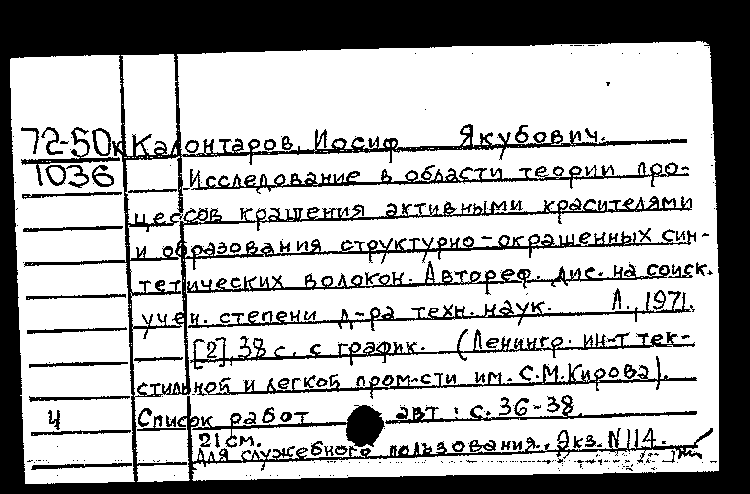 72-50к Калонтаров, Иосиф Якубович.
1036 Исследование в области теории про-
цессов крашения активными красителями
и образования структурно-окрашенных син-
тетических волокон. Автореф. дис. на соиск.
учен. степени д-ра техн. наук. Л., 1971.
[2], 38 с. с график. (Ленингр. ин-т тек-
стильной и легкой пром-сти им. С.М.Кирова).
4 Список работ авт: с. 36-38.
21 см.
Для служебного пользования. Экз. N 114.